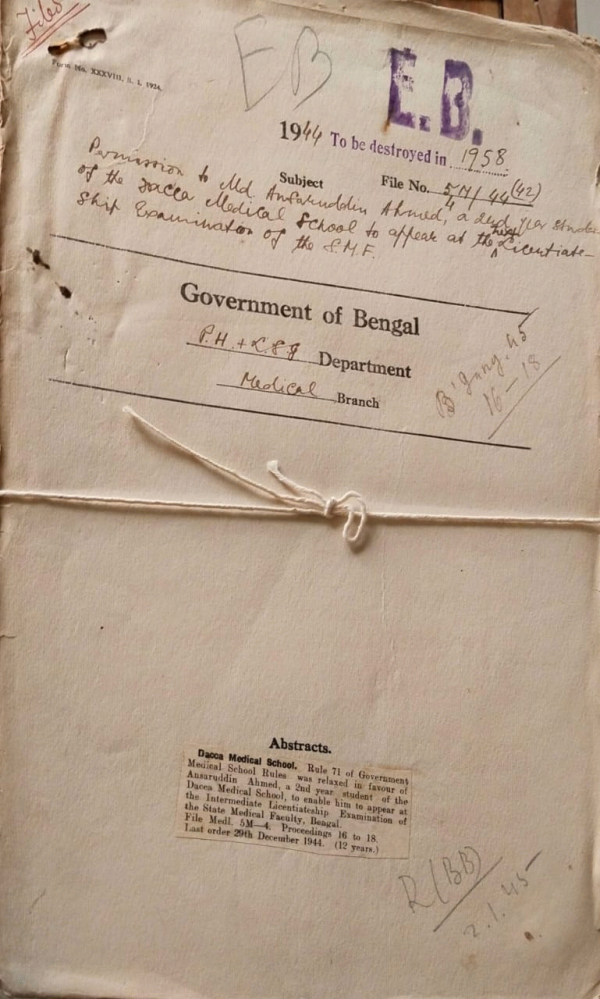 Files
Form No. XXXVIII. B. 1, 1924.
EB
E.B.
1944 To be destroyed in 1958.
Subject File No. 5M/44(42)
4
Permission to Md. Ansaruddin Ahmed, a 2nd year
of the Dacca Medical School to appear at the Licentiate-
ship Examination of the S.M.F.
Government of Bengal
P.H. & L.S.G Department
Medical Branch
16–18
Abstracts.
Dacca Medical School. Rule 71 of Government
Medical School Rules was relaxed in favour of
Ansaruddin Ahmed, a 2nd year student of the
Dacca Medical School, to enable him to appear at
the Intermediate Licentiateship Examination of
the State Medical Faculty, Bengal.
File Medl. 5M—4. Proceedings 16 to 18.
Last order 29th December 1944. (12 years.)
R(BB)
2.1.45